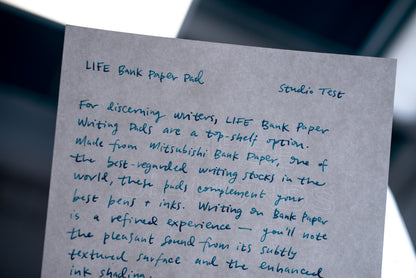 LIFE Bank Paper Pad
Studio Test
For discerning writers, LIFE Bank Paper
Writing Pads are a top-shelf option.
Made from Mitsubishi Bank Paper, one of
the best-regarded writing stocks in the
world, these pads complement your
best pens + inks. Writing on Bank Paper
is a refined experience — you'll note
the pleasant sound from its subtly
textured surface and the enhanced
ink shading.